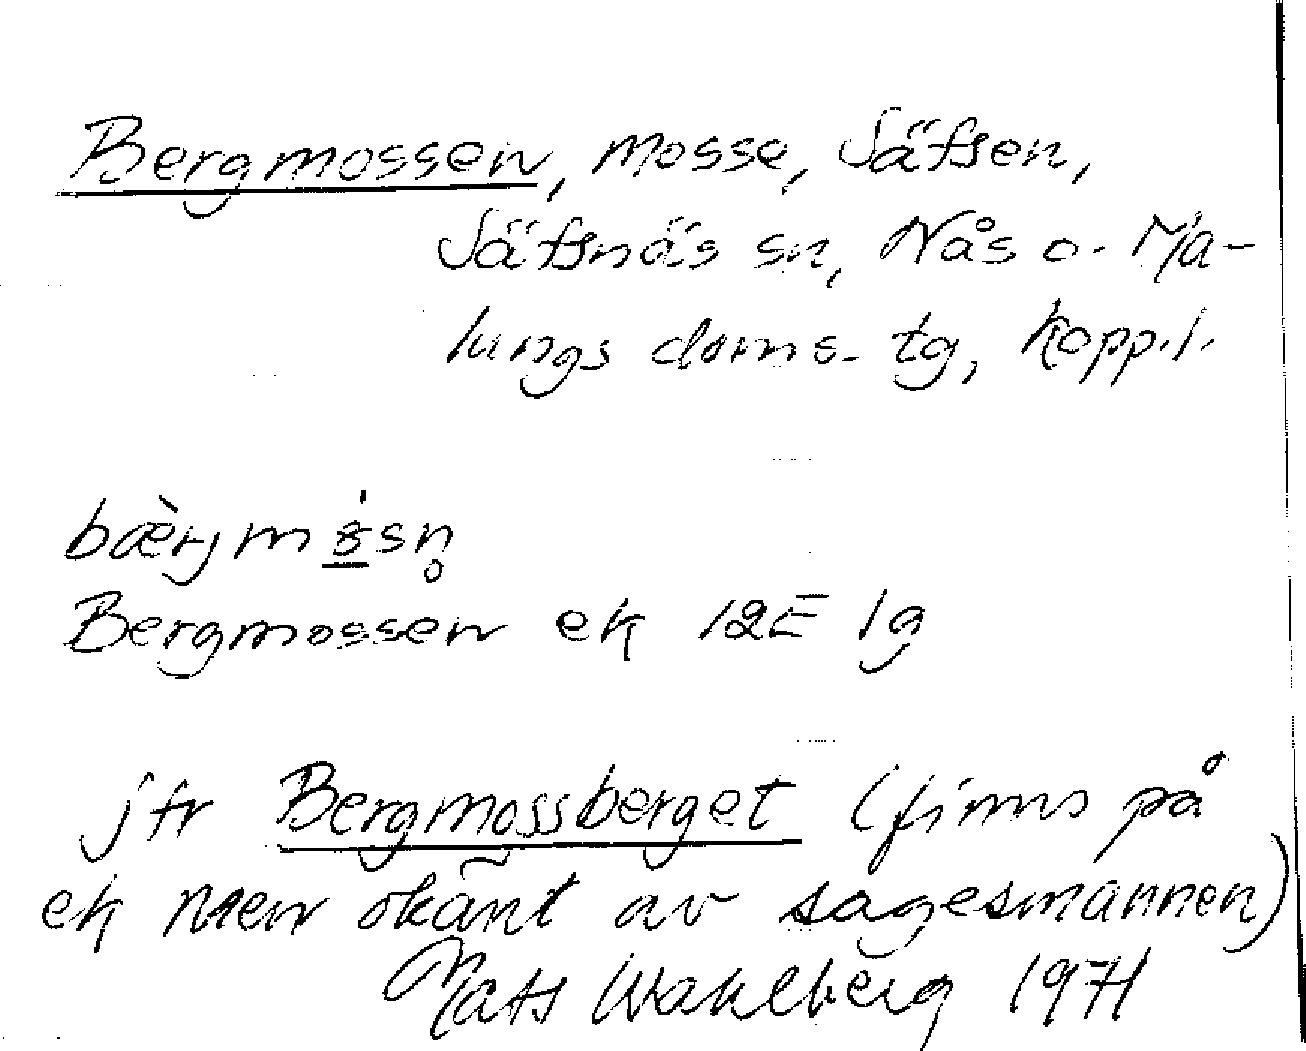 Bergmossen, mosse, Säfsen,
Säfsnäs sn, Nås o. Ma-
lungs doms. tg, Kopp.l.
Bergmossen ek 12E 1g
jfr Bergmossberget (finns på
ek men okänt av sagesmannen)
Mats Wahlberg 1971